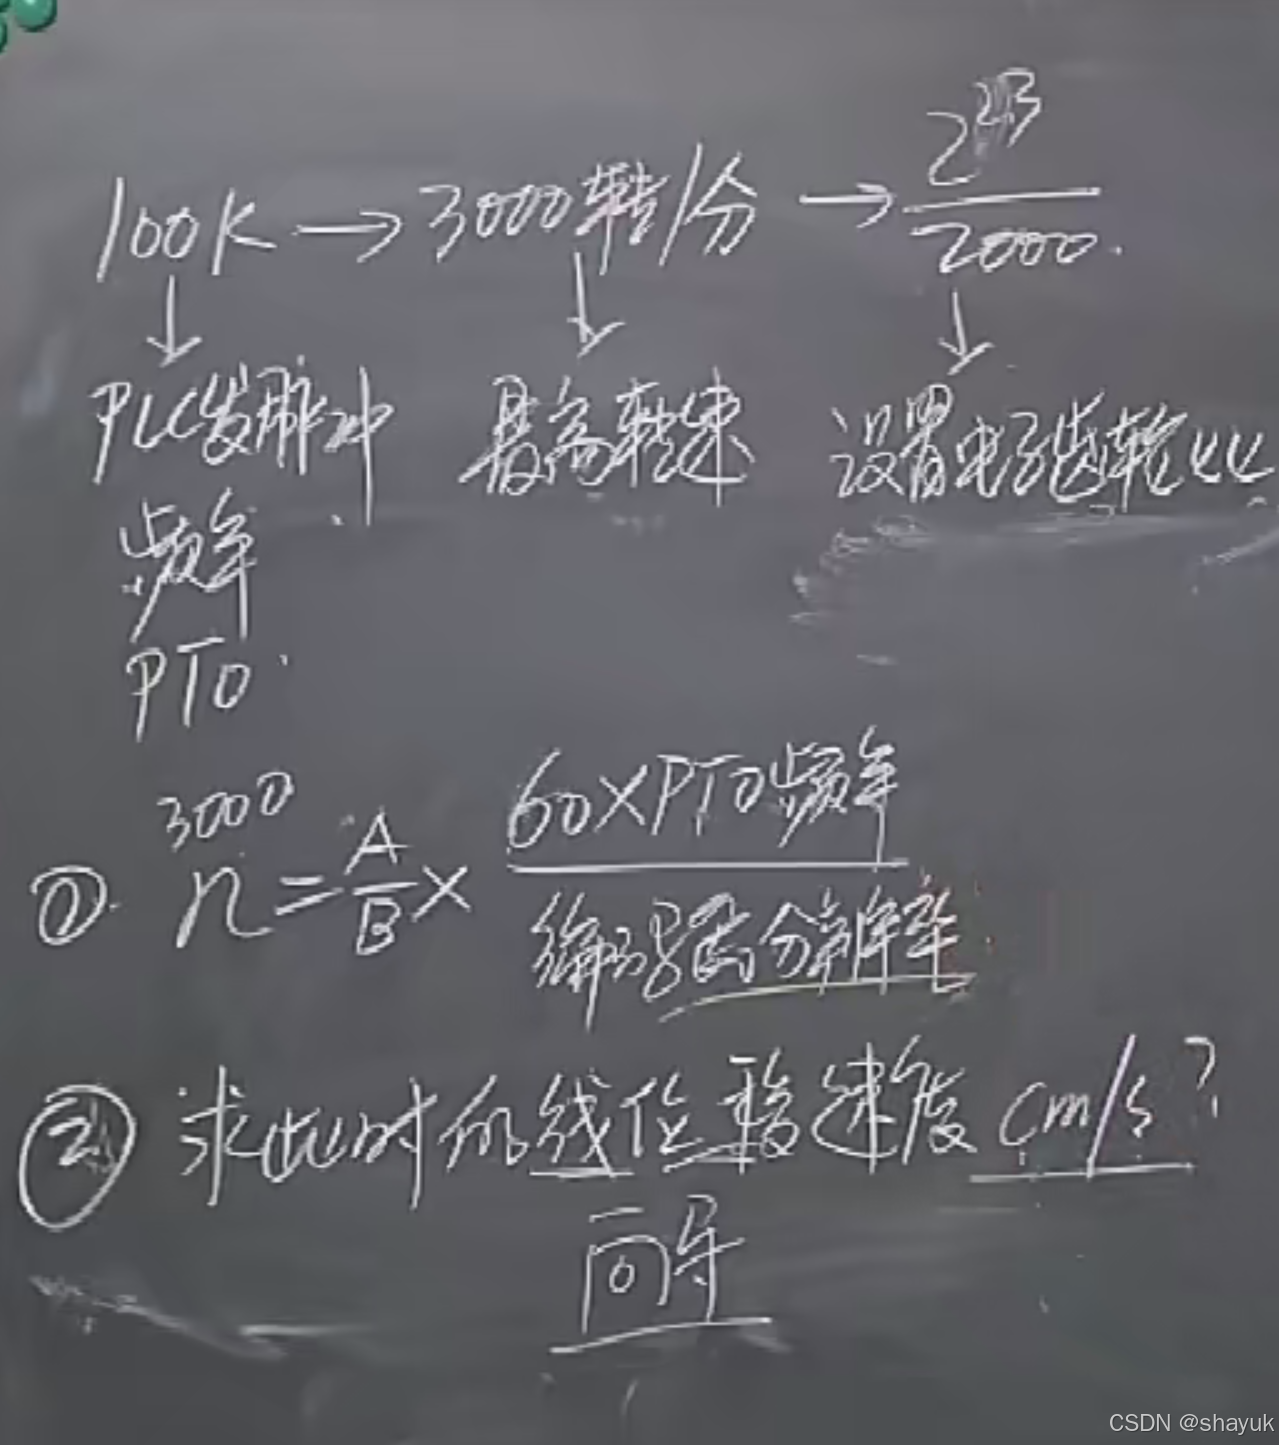 100K → 3000转/分 → 2^23/2000.
PLC发脉冲 最高转速 设置电子齿轮比
频率
PTO.
3000
① n = A/B × 60×PTO频率/编码器分辨率
② 求此时的线位移速度 cm/s?
CSDN @shayuk